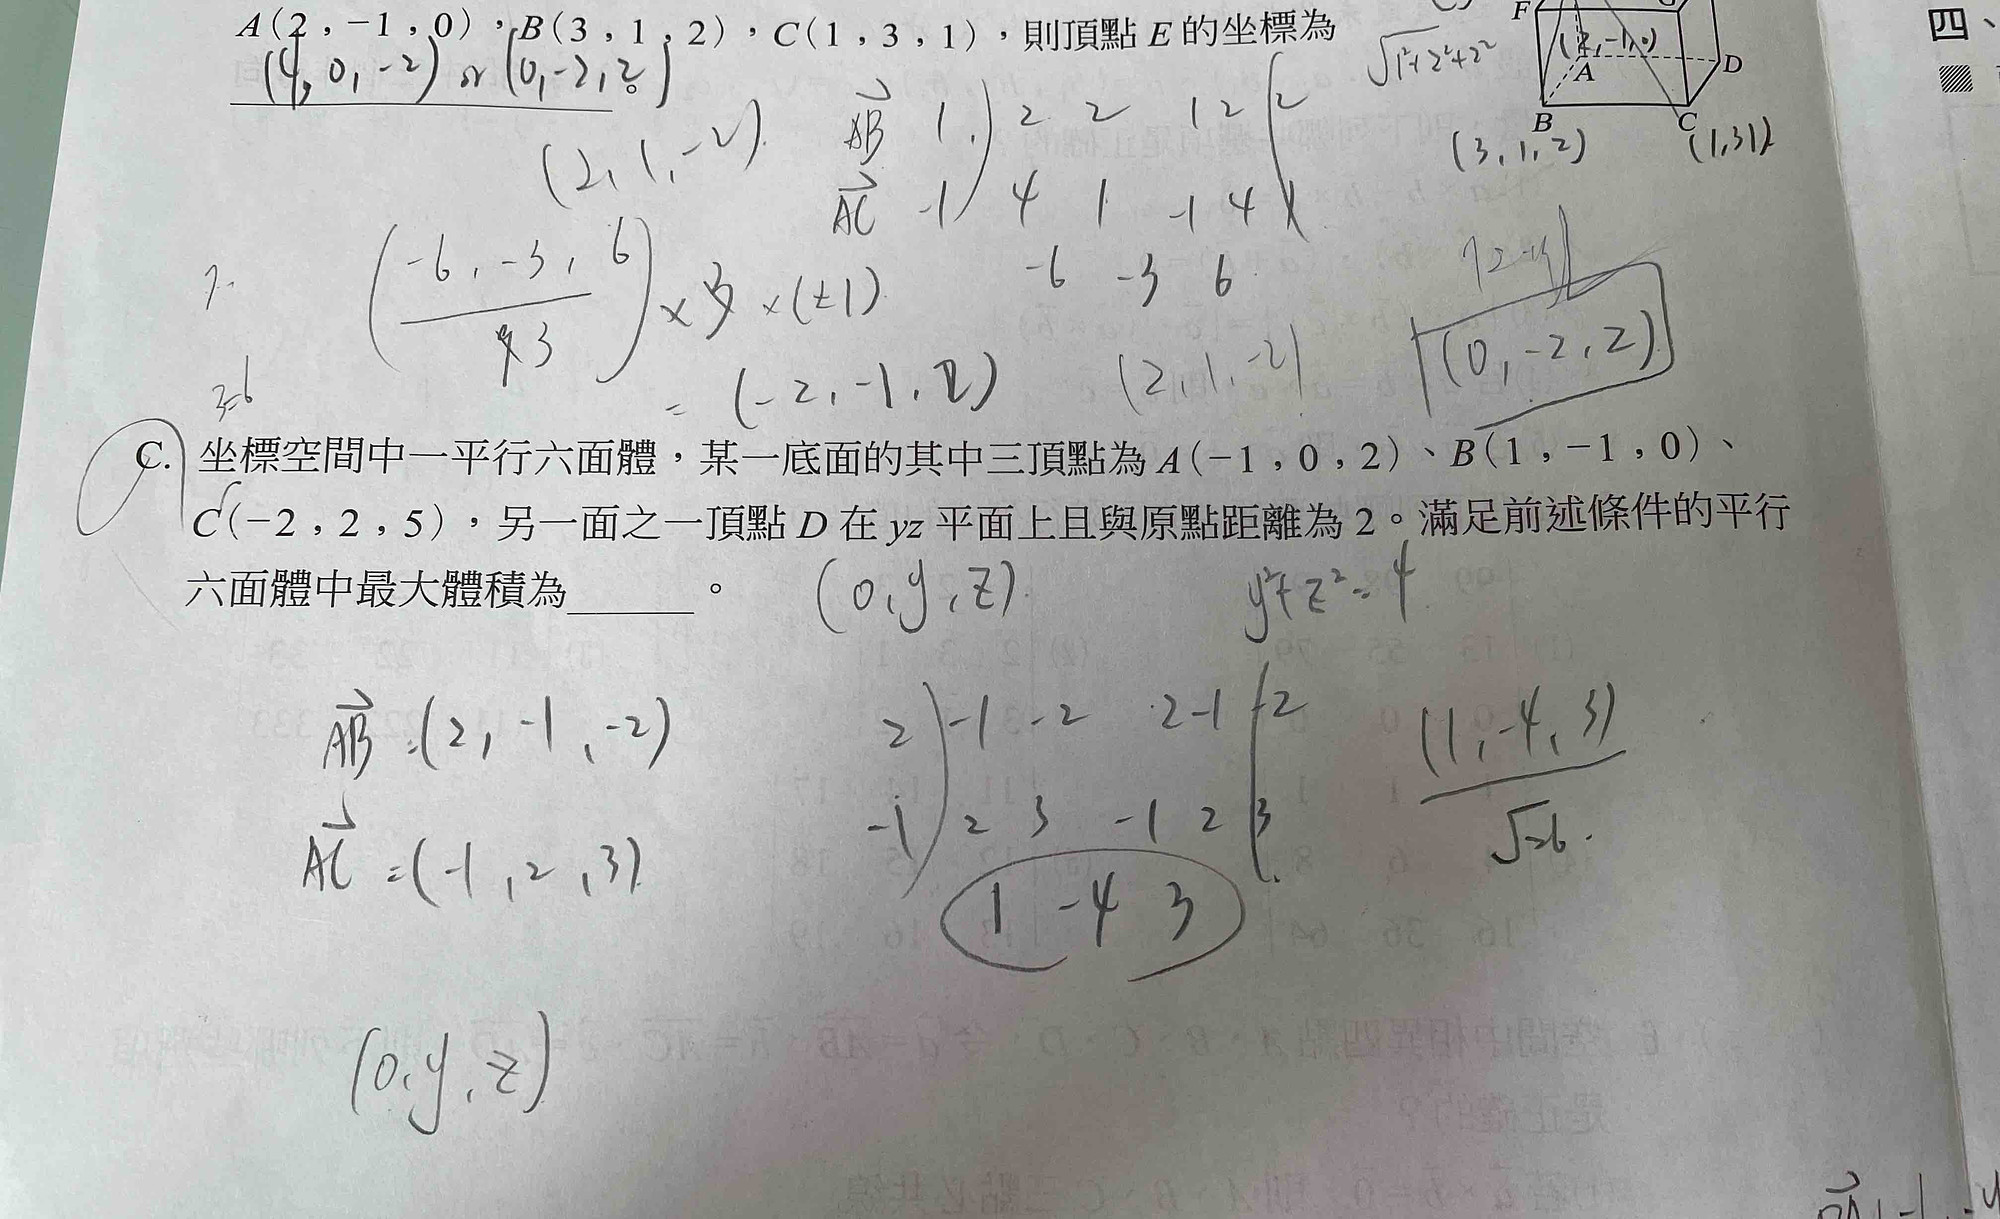 A(2，−1，0)，B(3，1，2)，C(1，3，1)，則頂點 E 的坐標為
(4, 0, -2) or (0, -2, 2)。
√1²+2²+2²
F
(2,-1,0)
A
D
B
C
(3,1,2)
(1,3,1)
(2, 1, -2)
AB 1 2 2 1 2 2
AC -1 4 1 -1 4 1
-6 -3 6
(-6, -3, 6 / 3) × 3 × (±1)
= (-2, -1, 2)
(2,1,-2)
(0, -2, 2)
3=6
C. 坐標空間中一平行六面體，某一底面的其中三頂點為 A(−1，0，2)、B(1，−1，0)、
C(−2，2，5)，另一面之一頂點 D 在 yz 平面上且與原點距離為 2。滿足前述條件的平行
六面體中最大體積為______。
(0, y, z)
y²+z²=4
AB=(2, -1, -2)
2 -1 -2 2 -1 -2
(1, -4, 3)
√26
AC=(-1, 2, 3)
-1 2 3 -1 2 3
1 -4 3
(0, y, z)
四、